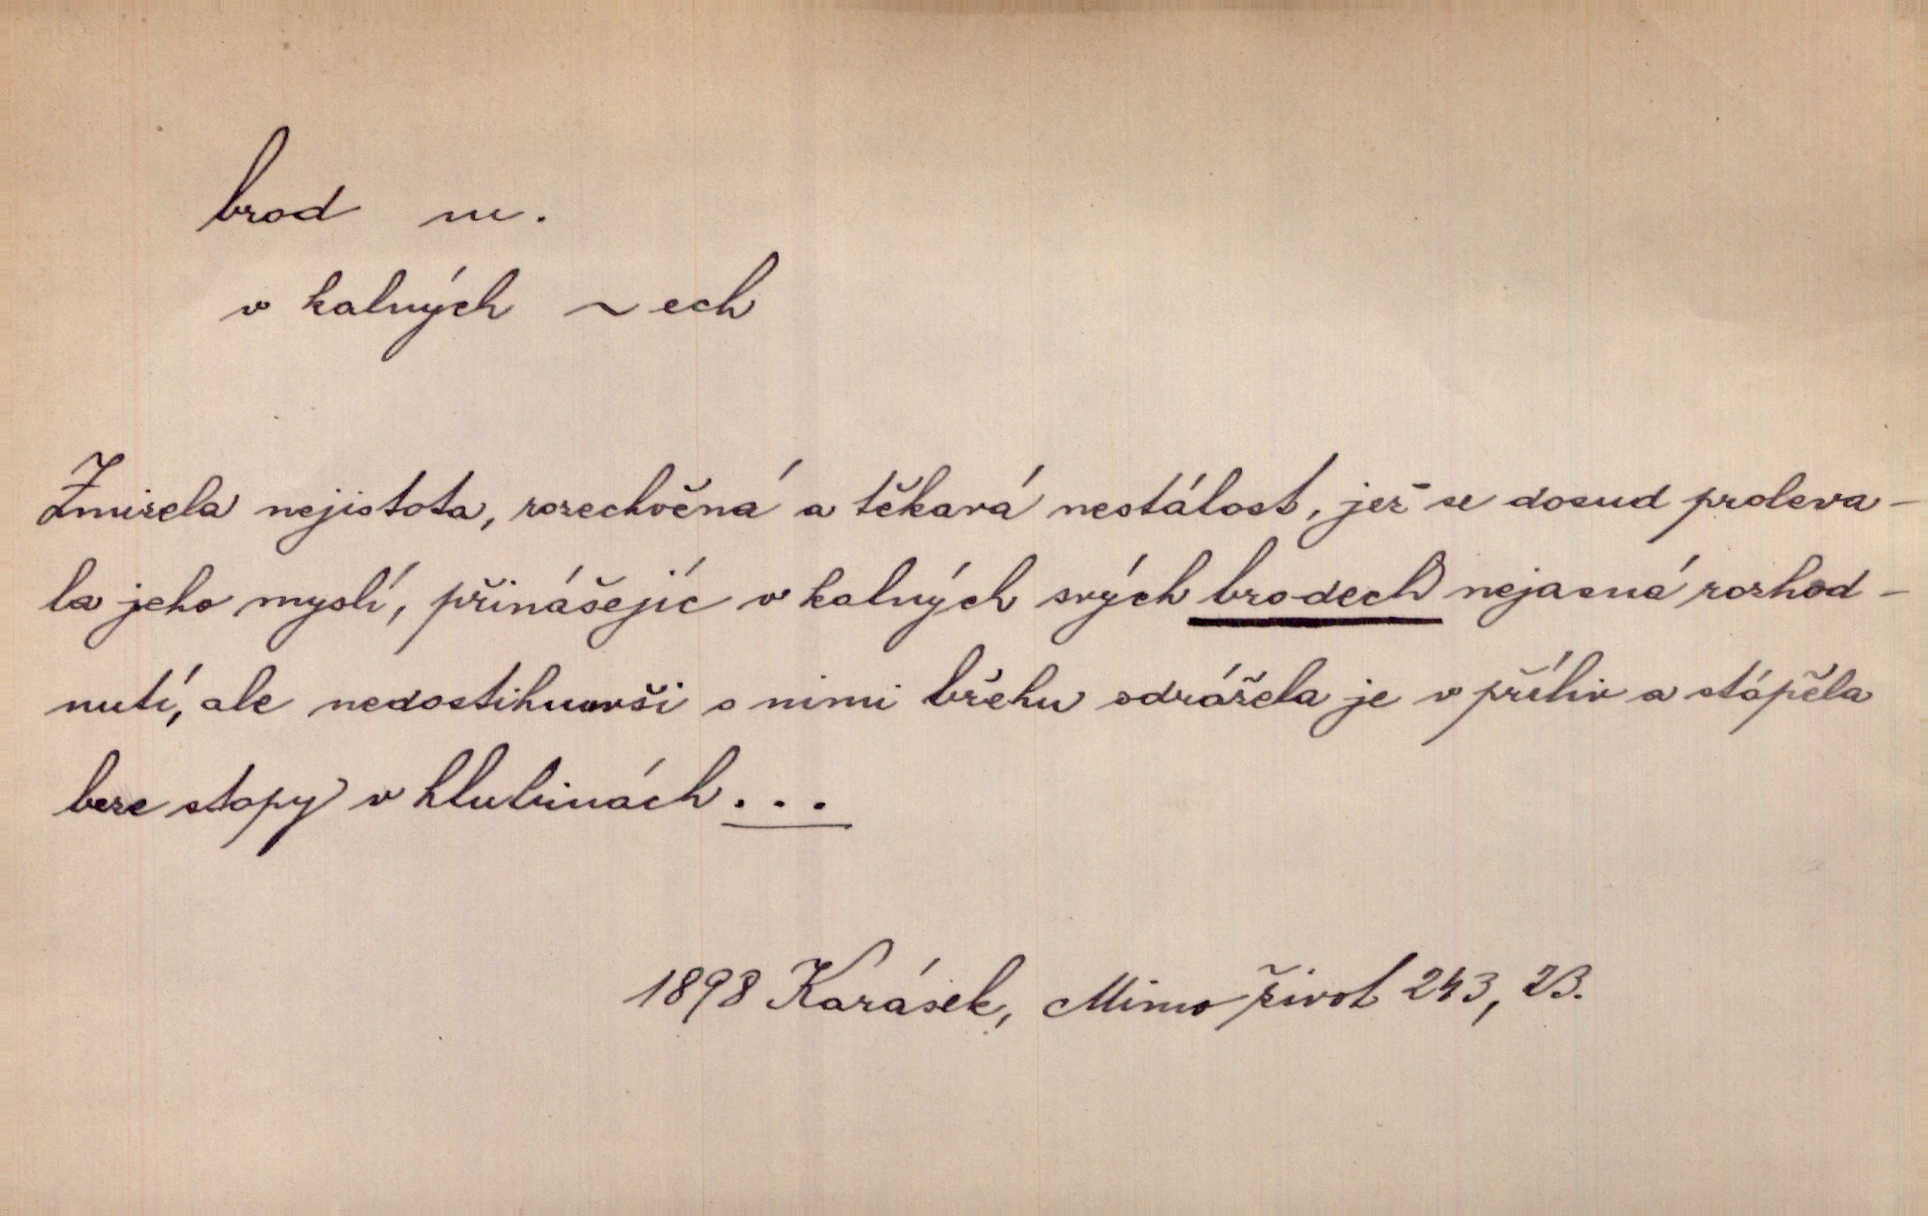 brod m.
v kalných ~ ech
Zmizela nejistota, rozechvěná a těkavá nestálost, jež se dosud proleva-
la jeho myslí, přinášejíc v kalných svých brodech nejasná rozhod-
nutí, ale nedostihnuvši s nimi břehu odrážela je v příliv a stápěla
beze stopy v hlubinách...
1898 Karásek, Mimo život 243, 23.